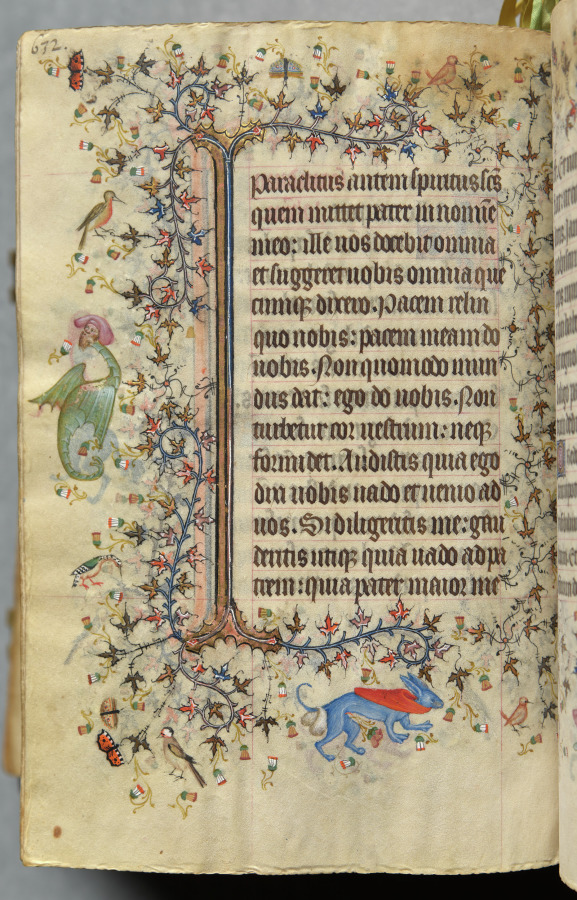 672.
Paraclitus autem spiritus scs
quem mittet pater in nomīe
meo: ille uos docebit omnia
et suggeret uobis omnia que
cumqꝫ dixero. Pacem relin
quo uobis: pacem meam do
uobis. Non quomodo mun
dus dat: ego do uobis. Non
turbetur cor uestrum: neqꝫ
formidet. Audistis quia ego
dixi uobis uado et uenio ad
uos. Si diligeretis me: gau
deretis utiqꝫ quia uado ad pa
trem: quia pater maior me